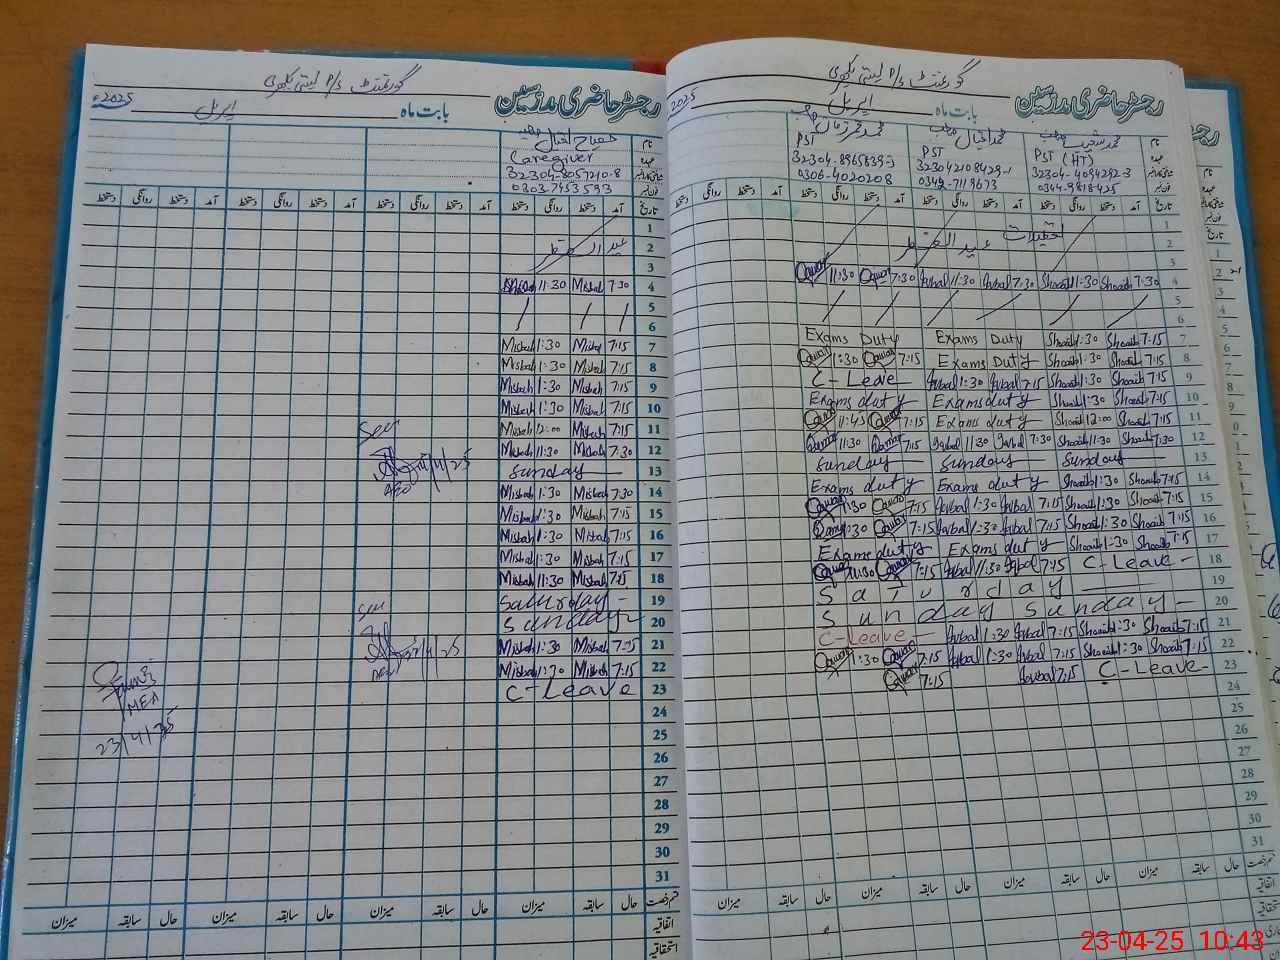 گورنمنٹ P/S
رجسٹر حاضری مدرسین
بابت ماہ اپریل 2025ء
نام
عہدہ Caregiver
32304-8057210-8
0303-7453593
تاریخ آمد دستخط روانگی دستخط آمد دستخط روانگی دستخط آمد دستخط روانگی دستخط آمد دستخط روانگی دستخط
1
2 عید الفطر
3
4 7:30 Misbah 11:30 Misbah
5
6
7 7:15 Misbah 1:30 Misbah
8 7:15 Misbah 1:30 Misbah
9 7:15 Misbah 1:30 Misbah
10 7:15 Misbah 1:30 Misbah
11 7:15 Misbah 12:00 Misbah
12 7:30 Misbah 11:30 Misbah
13 Sunday
14 7:30 Misbah 1:30 Misbah
15 7:15 Misbah 1:30 Misbah
16 7:15 Misbah 1:30 Misbah
17 7:15 Misbah 1:30 Misbah
18 7:15 Misbah 11:30 Misbah
19 Saturday
20 Sunday
21 7:15 Misbah 1:30 Misbah
22 7:15 Misbah 1:30 Misbah
23 C-Leave
24
25
26
27
28
29
30
31
Seen
AEO
Seen
AEO
MEA
23/4/25
قسم رخصت حال سابقہ میزان حال سابقہ میزان حال سابقہ میزان حال سابقہ میزان
اتفاقیہ
استحقاقیہ
گورنمنٹ P/S
رجسٹر حاضری مدرسین
بابت ماہ اپریل 2025
نام
عہدہ PST (HT) PST PST
32304-4094292-3 32304-2108429-1 32304-8965839-3
0344-9818425 0342-7119673 0306-4020208
تاریخ آمد دستخط روانگی دستخط آمد دستخط روانگی دستخط آمد دستخط روانگی دستخط آمد دستخط روانگی دستخط
1
2 تعطیلات عید الفطر
3
4 7:30 Shoaib 11:30 Shoaib 7:30 Iqbal 11:30 Iqbal 7:30 Qamar 11:30 Qamar
5
6
7 7:15 Shoaib 1:30 Shoaib Exams Duty Exams Duty
8 7:15 Shoaib 1:30 Shoaib Exams Duty 7:15 Qamar 1:30 Qamar
9 7:15 Shoaib 1:30 Shoaib 7:15 Iqbal 1:30 Iqbal C-Leave
10 7:15 Shoaib 1:30 Shoaib Exams duty Exams duty
11 7:15 Shoaib 12:00 Shoaib Exams duty 7:15 Qamar 11:45 Qamar
12 7:30 Shoaib 11:30 Shoaib 7:30 Iqbal 11:30 Iqbal 7:15 Qamar 11:30 Qamar
13 Sunday Sunday Sunday
14 7:15 Shoaib 1:30 Shoaib Exams duty Exams duty
15 7:15 Shoaib 1:30 Shoaib 7:15 Iqbal 1:30 Iqbal 7:15 Qamar 1:30 Qamar
16 7:15 Shoaib 1:30 Shoaib 7:15 Iqbal 1:30 Iqbal 7:15 Qamar 1:30 Qamar
17 7:15 Shoaib 1:30 Shoaib Exams duty Exams duty
18 C-Leave 7:15 Iqbal 11:30 Iqbal 7:15 Qamar 11:30 Qamar
19 Saturday
20 Sunday Sunday
21 7:15 Shoaib 1:30 Shoaib 7:15 Iqbal 1:30 Iqbal C-Leave
22 7:15 Shoaib 1:30 Shoaib 7:15 Iqbal 1:30 Iqbal 7:15 Qamar 1:30 Qamar
23 C-Leave 7:15 Iqbal 7:15 Qamar
24
25
26
27
28
29
30
31
قسم رخصت حال سابقہ میزان حال سابقہ میزان حال سابقہ میزان
اتفاقیہ
23-04-25 10:43